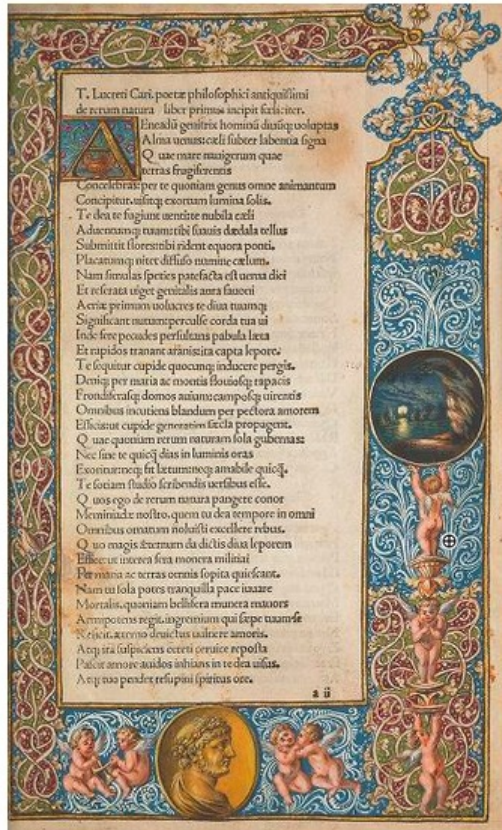 T. Lucreti Cari. poetæ philosophici antiquissimi
de rerum natura liber primus incipit fœliciter.
AEneadū genitrix hominū diuūq; uoluptas
Alma uenus: cæli subter labentia signa
Quae mare nauigerum quae
terras frugiferentis
Concelebras: per te quoniam genus omne animantum
Concipitur. uisitq; exortum lumina solis.
Te dea te fugiunt uenti: te nubila cæli
Aduentumq; tuum: tibi suauis dædala tellus
Submittit flores: tibi rident equora ponti.
Placatumq; nitet diffuso numine cælum.
Nam simulas species patefacta est uerna diei
Et reserata uiget genitalis aura fauoni
Aeriæ primum uolucres te diua tuumq;
Significant nutum: perculse corda tua ui
Inde fere pecudes persultans pabula læta
Et rapidos tranant amnis: ita capta lepore.
Te sequitur cupide quocunq; inducere pergis.
Deniq; per maria ac montis fluuiosq; rapacis
Frondiferasq; domos auium: camposq; uirentis
Omnibus incutiens blandum per pectora amorem
Efficis: ut cupide generatim sæcla propagent.
Quae quoniam rerum naturam sola gubernas:
Nec sine te quicq̃ dias in luminis oras
Exoritur: neq; fit lætum: neq; amabile quicq̃.
Te sotiam studio scribendis uersibus esse.
Quos ego de rerum natura pangere conor
Meminiadæ nostro. quem tu dea tempore in omni
Omnibus ornatum uoluisti excellere rebus.
Quo magis æternum da dictis diua leporem
Effice: ut interea fera monera militiai
Per maria ac terras omnis sopita quiescant.
Nam tu sola potes tranquilla pace iuuare
Mortalis. quoniam bellifera munera mauors
Armipotens regit. ingremium qui sæpe tuum se
Reiicit. æterno deuictus uulnere amoris.
Atq; ita suspiciens cereti ceruice reposta
Pascit amore auidos inhians in te dea uisus.
Atq; tuo pendet resupini spiritus ore.
a ii